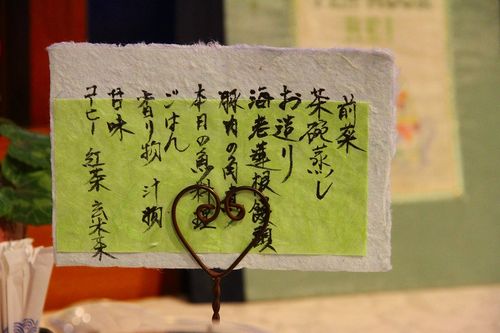 前菜
茶碗蒸し
お造り
海老蓮根饅頭
豚肉の角煮
本日の魚料理
ごはん
香り物 汁物
甘味
コーヒー 紅茶 玄米茶